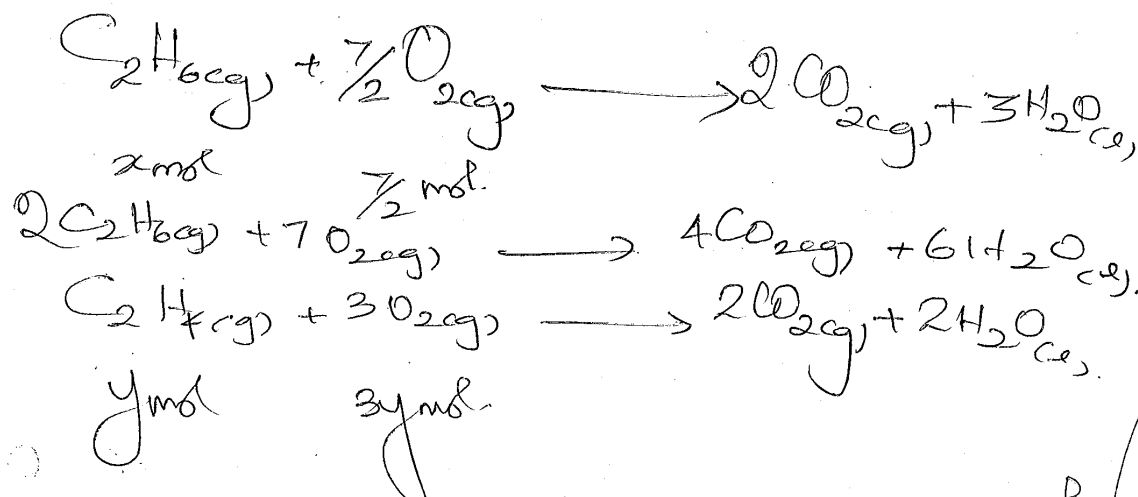 C₂H₆(g) + 7/2 O₂(g) → 2CO₂(g) + 3H₂O(l)
x mol 7/2 mol.
2C₂H₆(g) + 7O₂(g) → 4CO₂(g) + 6H₂O(l).
C₂H₄(g) + 3O₂(g) → 2CO₂(g) + 2H₂O(l).
y mol 3y mol.